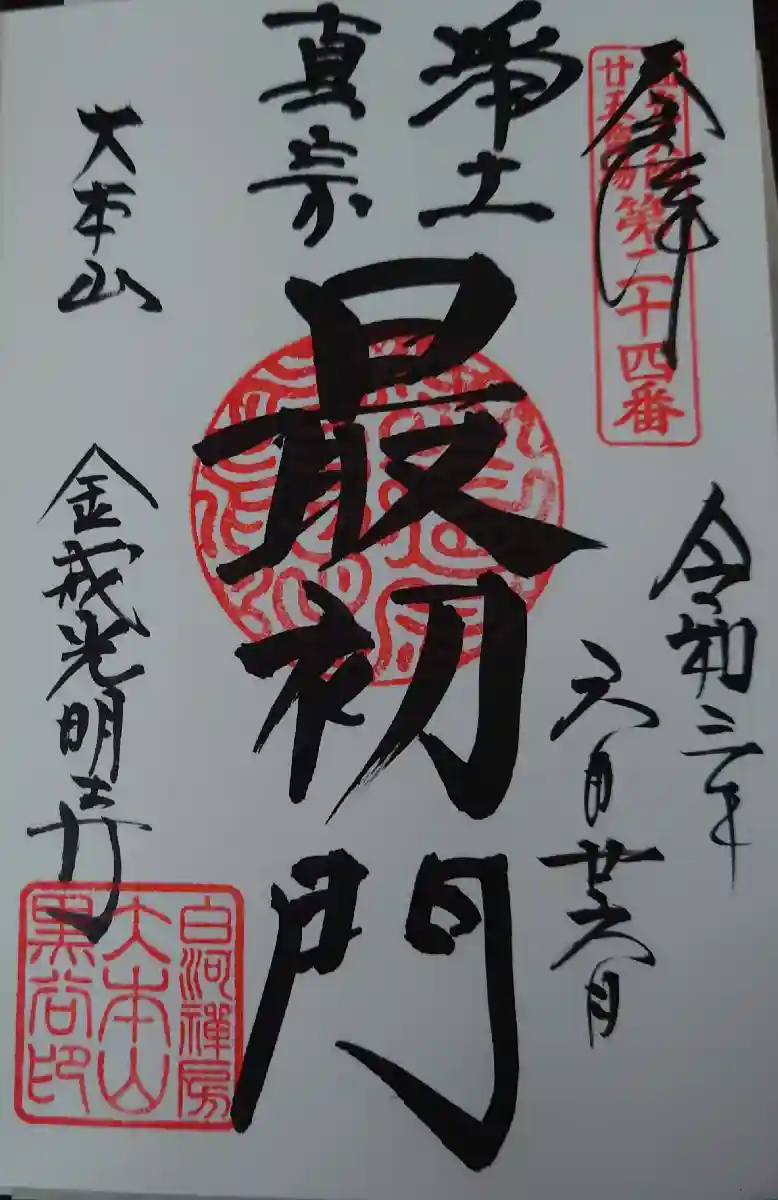 奉拝
圓光大師
廿五霊場
第二十四番
令和三年
六月廿六日
浄土
真宗
最初門
大本山
金戒光明寺
白河禪房
大本山
黒谷印